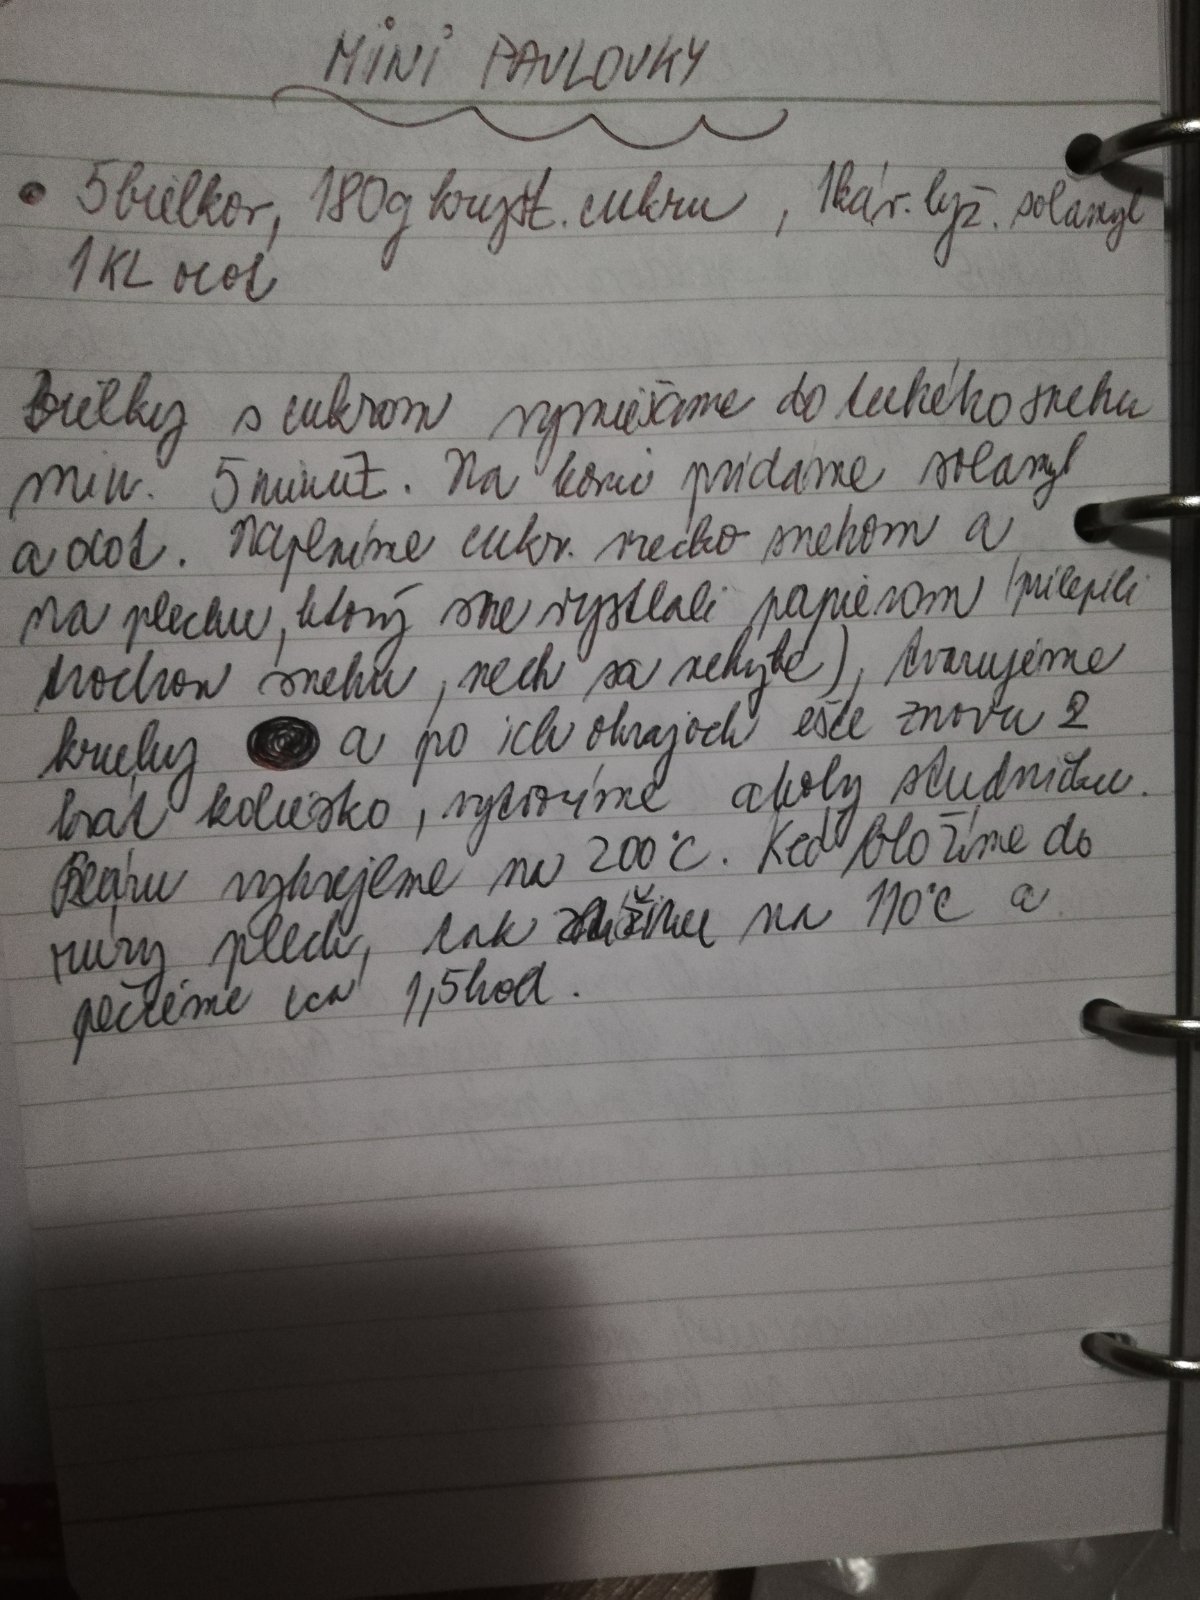 MINI PAVLOVKY
• 5 bielkov, 180g kryšt. cukru, 1 káv. lyž. solamyl
1 KL ocot
Bielky s cukrom vymiešame do tuhého snehu
min. 5 minút. Na konci pridáme solamyl
a ocot. Naplníme cukr. vrecko snehom a
na plechu, ktorý sme vystlali papierom (prilepili
trochou snehu, nech sa nehýbe), tvarujeme
kruhy a po ich okrajoch ešte znova 2
krát koliesko, vytvoríme akoby studničku.
Rúru vyhrejeme na 200°C. Keď vložíme do
rúry plech, tak znížime na 110°C a
pečieme cca 1,5 hod.